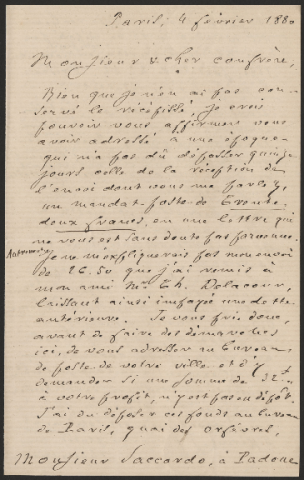 Paris, 4 février 1880
Monsieur & cher confrère,
Bien que je n'en ai pas con-
servé le récépissé, je crois
pouvoir vous affirmer vous
avoir adressé à une époque
qui n'a pas dû dépasser quinze
jours celle de la réception de
l'envoi dont vous me parlez,
un mandat-poste de trente
deux francs, ou une lettre qui
ne vous est sans doute pas parvenue.
Autrement je ne m'expliquerais pas mon envoi
de 26.50 que j'ai remis à
mon ami Mr Th. Delacour,
laissant ainsi impayé une dette
antérieure. Je vous prie donc,
avant de faire des démarches
ici, de vous adresser au bureau
de poste de votre ville et d'y
demander si une somme de 32 f
à votre profit, n'y est pas en dépôt.
J'ai dû déposer ces fonds au bureau
de Paris, quai des orfèvres,
Monsieur Saccardo, à Padoue